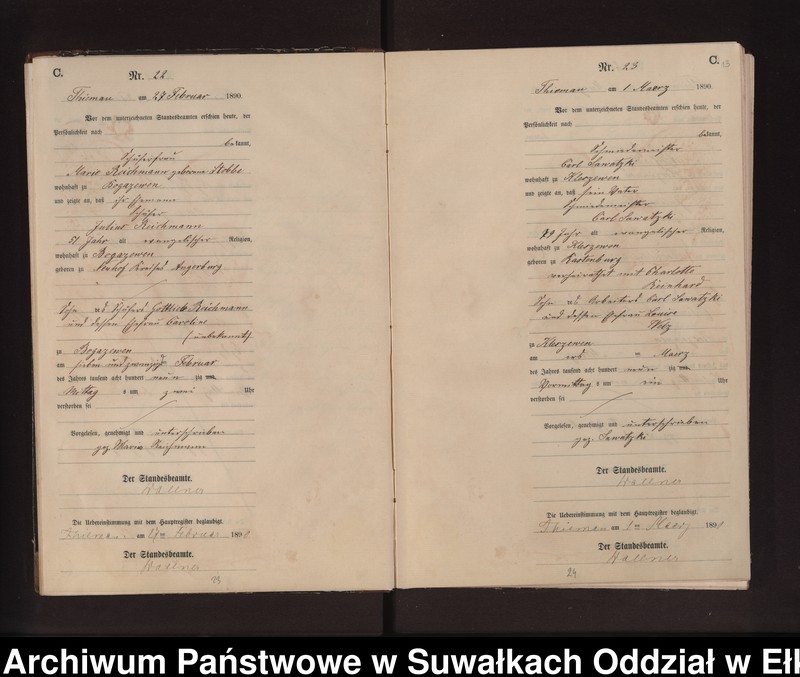 C.
Nr. 22
Thieman am 27 Februar 1890.
Vor dem unterzeichneten Standesbeamten erschien heute, der
Persönlichkeit nach
bekannt,
Schäferfrau
Marie Reichmann geborene Stobbe
wohnhaft zu Bogazewen
und zeigte an, daß ihr Ehemann
Schäfer
Julius Reichmann
51 Jahr alt evangelischer Religion,
wohnhaft zu Bogazewen
geboren zu Kreises Angerburg
Sohn des Schäfers Gottlieb Reichmann
und dessen Ehefrau Caroline
(unbekannt)
zu Bogazewen
am sieben und zwanzigsten Februar
des Jahres tausend acht hundert neun zig
Mittag s um zwei Uhr
verstorben sei
Vorgelesen, genehmigt und unterschrieben
gez. Marie Reichmann
Der Standesbeamte.
Wallner
Die Uebereinstimmung mit dem Hauptregister beglaubigt.
Thieman am 27ten Februar 1890
Der Standesbeamte.
Wallner
23
C.
Nr. 23
Thieman am 1 Maerz 1890.
Vor dem unterzeichneten Standesbeamten erschien heute, der
Persönlichkeit nach
bekannt,
Schmiedemeister
Carl Sawatzki
wohnhaft zu Kleszewen
und zeigte an, daß sein Vater
Schmiedemeister
Carl Sawatzki
Jahr alt evangelischer Religion,
wohnhaft zu Kleszewen
geboren zu Rastenburg
verheirathet mit Charlotte
Reinhard
Sohn des Arbeiters Carl Sawatzki
und dessen Ehefrau Louise
zu Kleszewen
am Maerz
des Jahres tausend acht hundert neun zig
Vormittag s um ein Uhr
verstorben sei
Vorgelesen, genehmigt und unterschrieben
gez. Sawatzki
Der Standesbeamte.
Wallner
Die Uebereinstimmung mit dem Hauptregister beglaubigt.
Thieman am 1ten Maerz 1890
Der Standesbeamte.
Wallner
24
Archiwum Państwowe w Suwałkach Oddział w Ełk